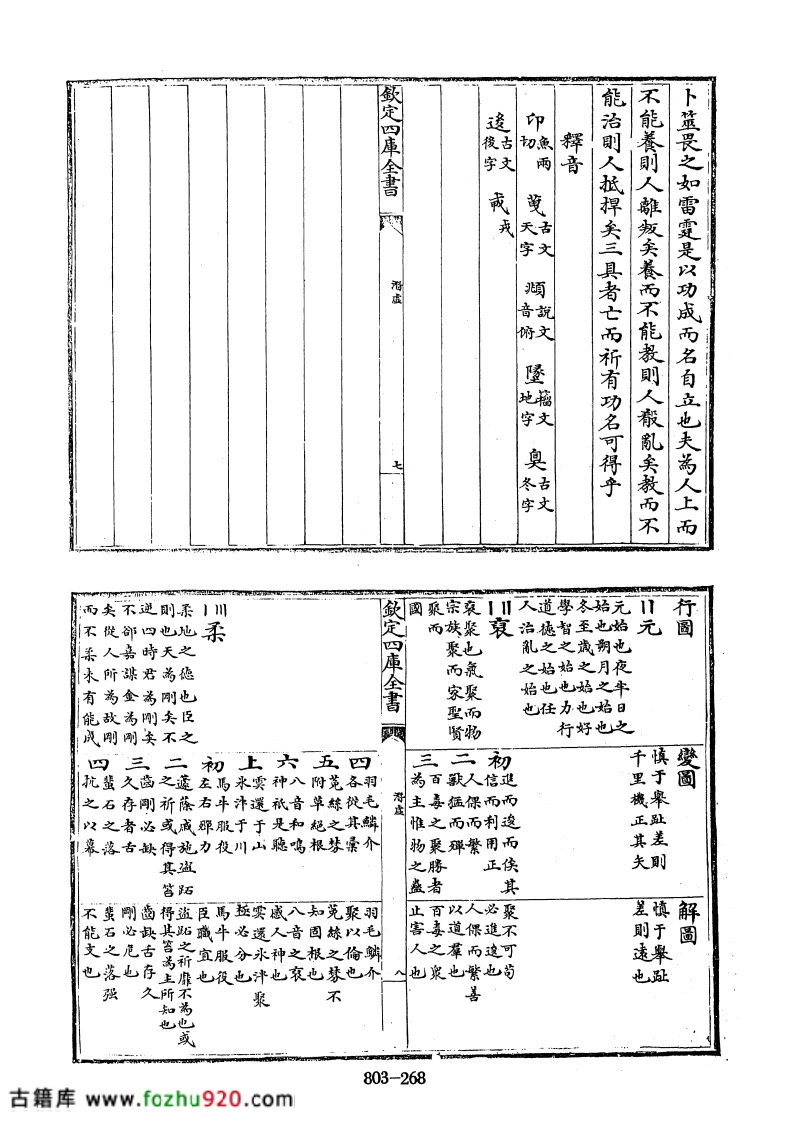 卜筮畏之如雷霆是以功成而名自立也夫為人上而
不能養則人離叛矣養而不能教則人殽亂矣教而不
能治則人抵捍矣三具者亡而祈有功名可得乎
釋音
卬魚兩切 古文天字 頫說文音俯 墬籀文地字 古文冬字
逡古文後字 戎
欽定四庫全書
潛虛
七
行圖
元
元始也夜半日之
始也朔月之始也
冬至歲之始也好
學智之始也力行
道德之始也任
人治亂之始也
裒
裒聚也氣聚而物
宗族聚而家聖賢
聚而
國
變圖
慎于舉趾差則
千里機正其矢
初
進而逡而俟其
信而利用正
二
人倮而繁
獸猛而殫
三
百毒之聚勝者
為主惟物之蠱
解圖
慎于舉趾
差則遠也
聚不可苟
必進逡也
人倮而繁善
以道羣也
百毒之聚
止害人也
欽定四庫全書
潛虛
八
四
羽毛鱗介
各從其彙
五
菟絲之棼
附草絕根
六
八音和鳴
神祇是聽
上
雲還于山
氷泮于川
羽毛鱗介
聚以倫也
菟絲之棼不
知固根也
八音之裒
感人神也
雲還氷泮聚
極必分也
柔
柔地之德也臣之
則也天為剛矣不
逆四時君為剛矣
不卻嘉謀金為剛
矣從人所為故剛
而不柔未有能成
初
馬牛服役
左右郡力
二
蘧蒢戚施盜跖
之祈或得其笞
三
齒剛必缺
久存者舌
四
蜚石之落
抗之以幕
馬牛服役
臣職宜也
盜跖之祈靡不為也或
得其笞為主所知也
齒缺舌存久
剛必危也
蜚石之落强
不能支也
803-268
古籍库 www.fozhu920.com